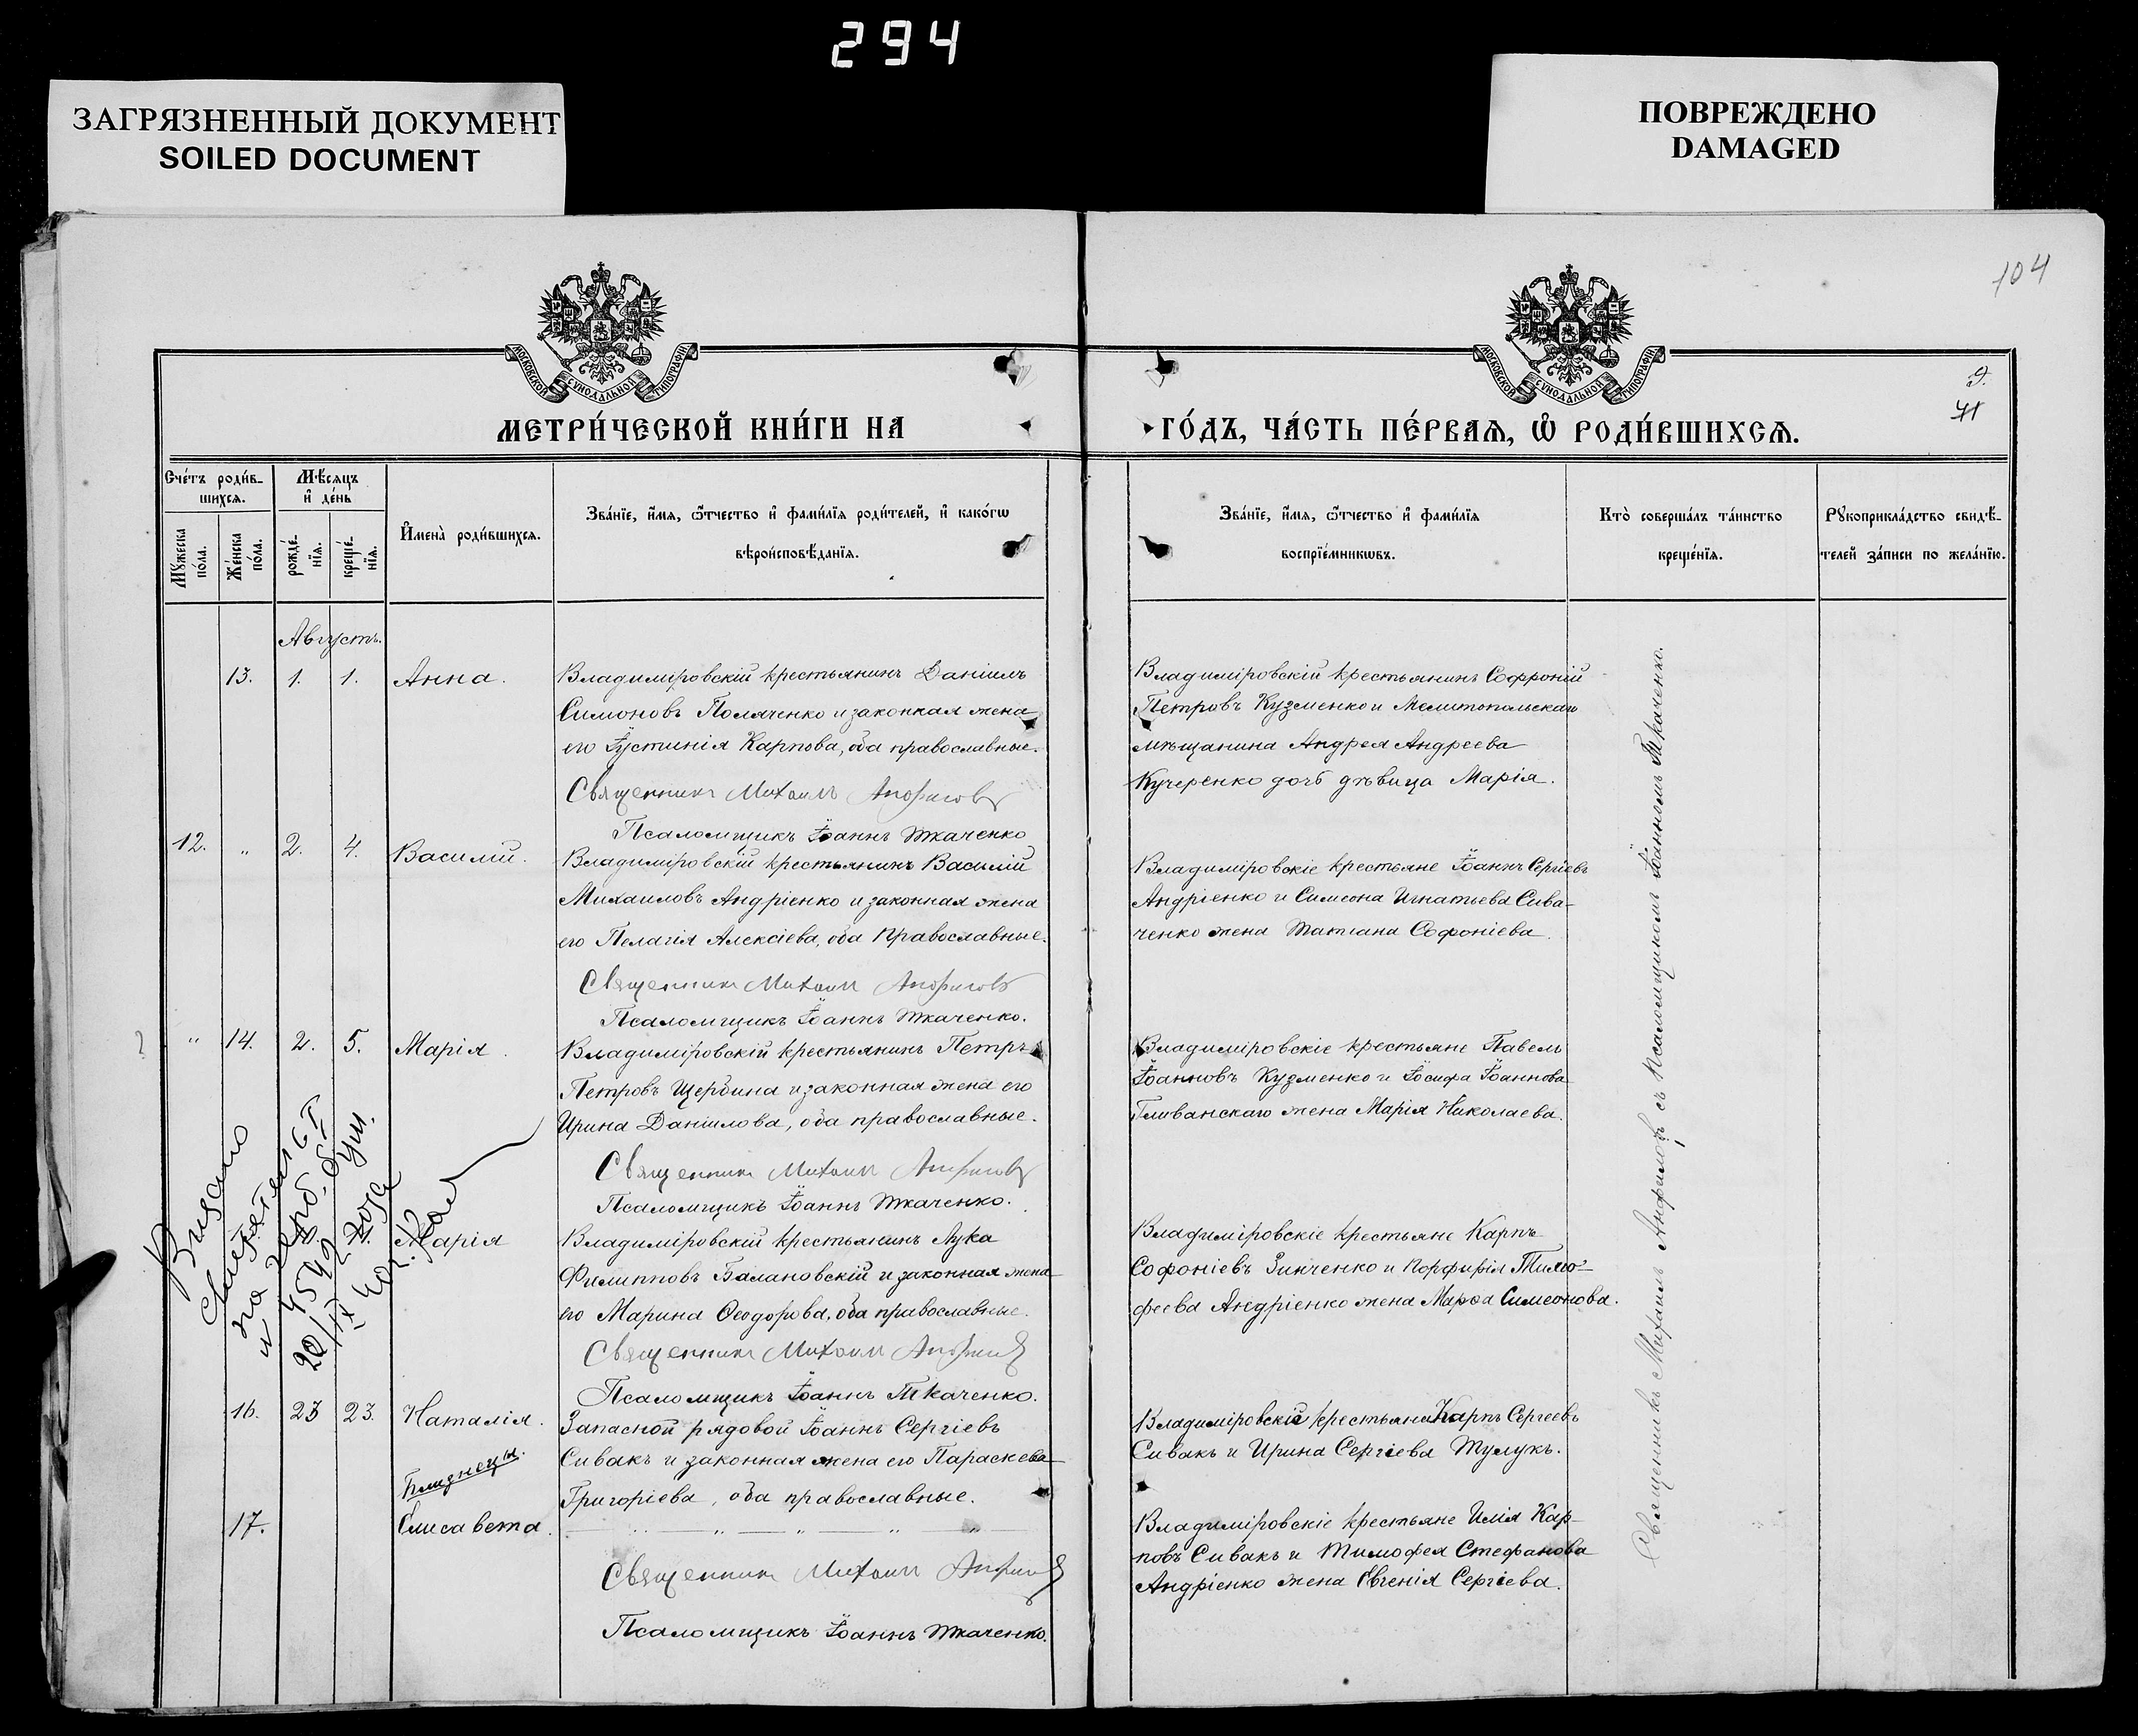 294
ЗАГРЯЗНЕННЫЙ ДОКУМЕНТ
SOILED DOCUMENT
ПОВРЕЖДЕНО
DAMAGED
104
МОСКОВСКОЙ СѴНОДАЛЬНОЙ ТИПОГРАФІИ
МОСКОВСКОЙ СѴНОДАЛЬНОЙ ТИПОГРАФІИ
9.
41
МЕТРИ́ЧЕСКОЙ КНИ́ГИ НА
ГО́ДЪ, ЧА́СТЬ ПЕ́РВАѦ, Ѽ РОДИ́ВШИХСѦ.
Сче́тъ роди́в-
шихсѧ.
Мꙋ́жеска по́ла.
Же́нска по́ла.
Мѣ́сѧцъ
и҆ де́нь
рожде́-
нїѧ.
креще́-
нїѧ.
И҆мена̀ роди́вшихсѧ.
Зва́нїе, и҆́мѧ, ѻ҆́тчество и҆ фами́лїѧ роди́телей, и҆ како́гѡ
вѣроисповѣ́данїѧ.
Зва́нїе, и҆́мѧ, ѻ҆́тчество и҆ фами́лїѧ
воспрїе́мникѡвъ.
Кто̀ соверша́лъ та́инство
креще́нїѧ.
Рꙋкоприкла́дство свидѣ́-
телей за́писи по жела́нїю.
Августъ.
13. 1. 1. Анна.
Владиміровскій крестьянинъ Даніилъ
Симоновъ Поляченко и законная жена
его Іустинія Карпова, оба православные.
Священникъ Михаилъ
Псаломщикъ Іоаннъ Ткаченко
Владиміровскій крестьянинъ Софроній
Петровъ Кузменко и Мелитопольскаго
мѣщанина Андрея Андреева
Кучеренко дочь дѣвица Марія.
12. „ 2. 4. Василій.
Владиміровскій крестьянинъ Василій
Михаиловъ Андріенко и законная жена
его Пелагія Алексіева, оба православные.
Священникъ Михаилъ
Псаломщикъ Іоаннъ Ткаченко.
Владиміровскіе крестьяне Іоаннъ Сергіевъ
Андріенко и Симеона Игнатьева Сива-
ченко жена Татіана Софоніева.
? „ 14. 2. 5. Марія.
Владиміровскій крестьянинъ Петръ
Петровъ Щербина и законная жена его
Ирина Даніилова, оба православные.
Священникъ Михаилъ
Псаломщикъ Іоаннъ Ткаченко.
Владиміровскіе крестьяне Павелъ
Іоанновъ Кузменко и Іосифа Іоаннова
Гливанскаго жена Марія Николаева.
Видано
на
и 4542
20/IX 40г.
Марія
Владиміровскій крестьянинъ Лука
Филипповъ Балановскій и законная жена
его Марина Ѳеодорова, оба православные.
Священникъ Михаилъ
Псаломщикъ Іоаннъ Ткаченко.
Владиміровскіе крестьяне Карпъ
Софоніевъ Зинченко и Порфирія Тимо-
феева Андріенко жена Марѳа Симеонова.
16. 23 23. Наталія.
Близнецы.
Запасной рядовой Іоаннъ Сергіевъ
Сивакъ и законная жена его Параскева
Григоріева, оба православные.
Владиміровскіе крестьяне Карпъ Сергеевъ
Сивакъ и Ирина Сергіева Тулукъ.
17. Елисавета.
„ — „ — „ „ — „
Священникъ Михаилъ
Псаломщикъ Іоаннъ Ткаченко.
Владиміровскіе крестьяне Илія Кар-
повъ Сивакъ и Тимофея Стефанова
Андріенко жена Евгенія Сергіева.
Священникъ Михаилъ Анфиловъ съ псаломщикомъ Іоанномъ Ткаченко.